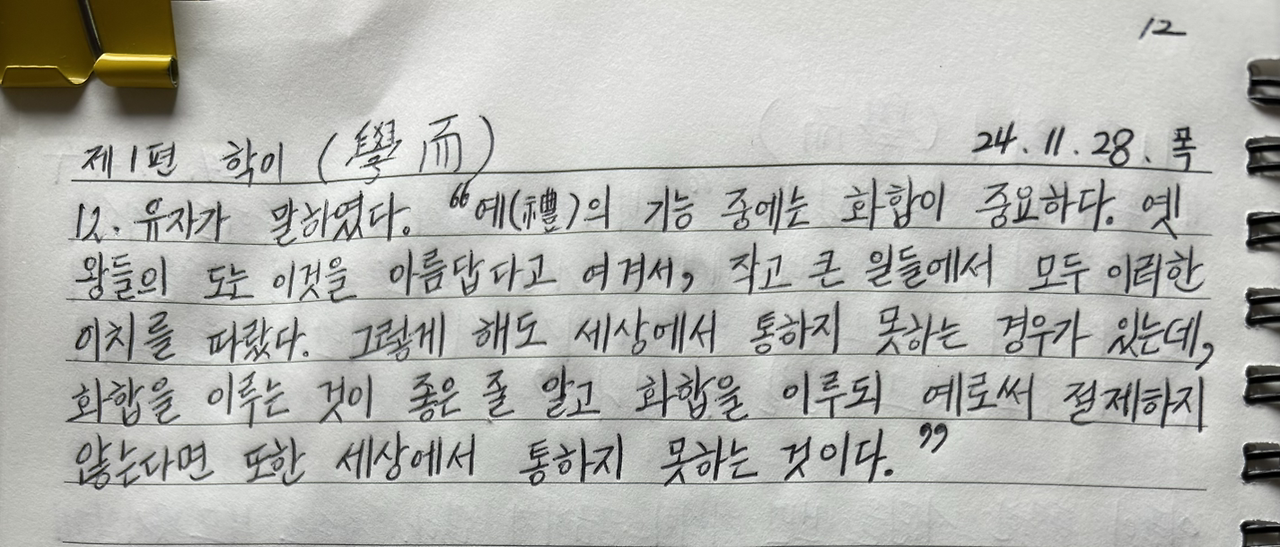 12
제1편 학이 (學而) 24.11.28. 목
12. 유자가 말하였다. “예(禮)의 기능 중에는 화합이 중요하다. 옛
왕들의 도는 이것을 아름답다고 여겨서, 작고 큰 일들에서 모두 이러한
이치를 따랐다. 그렇게 해도 세상에서 통하지 못하는 경우가 있는데,
화합을 이루는 것이 좋은 줄 알고 화합을 이루되 예로써 절제하지
않는다면 또한 세상에서 통하지 못하는 것이다.”